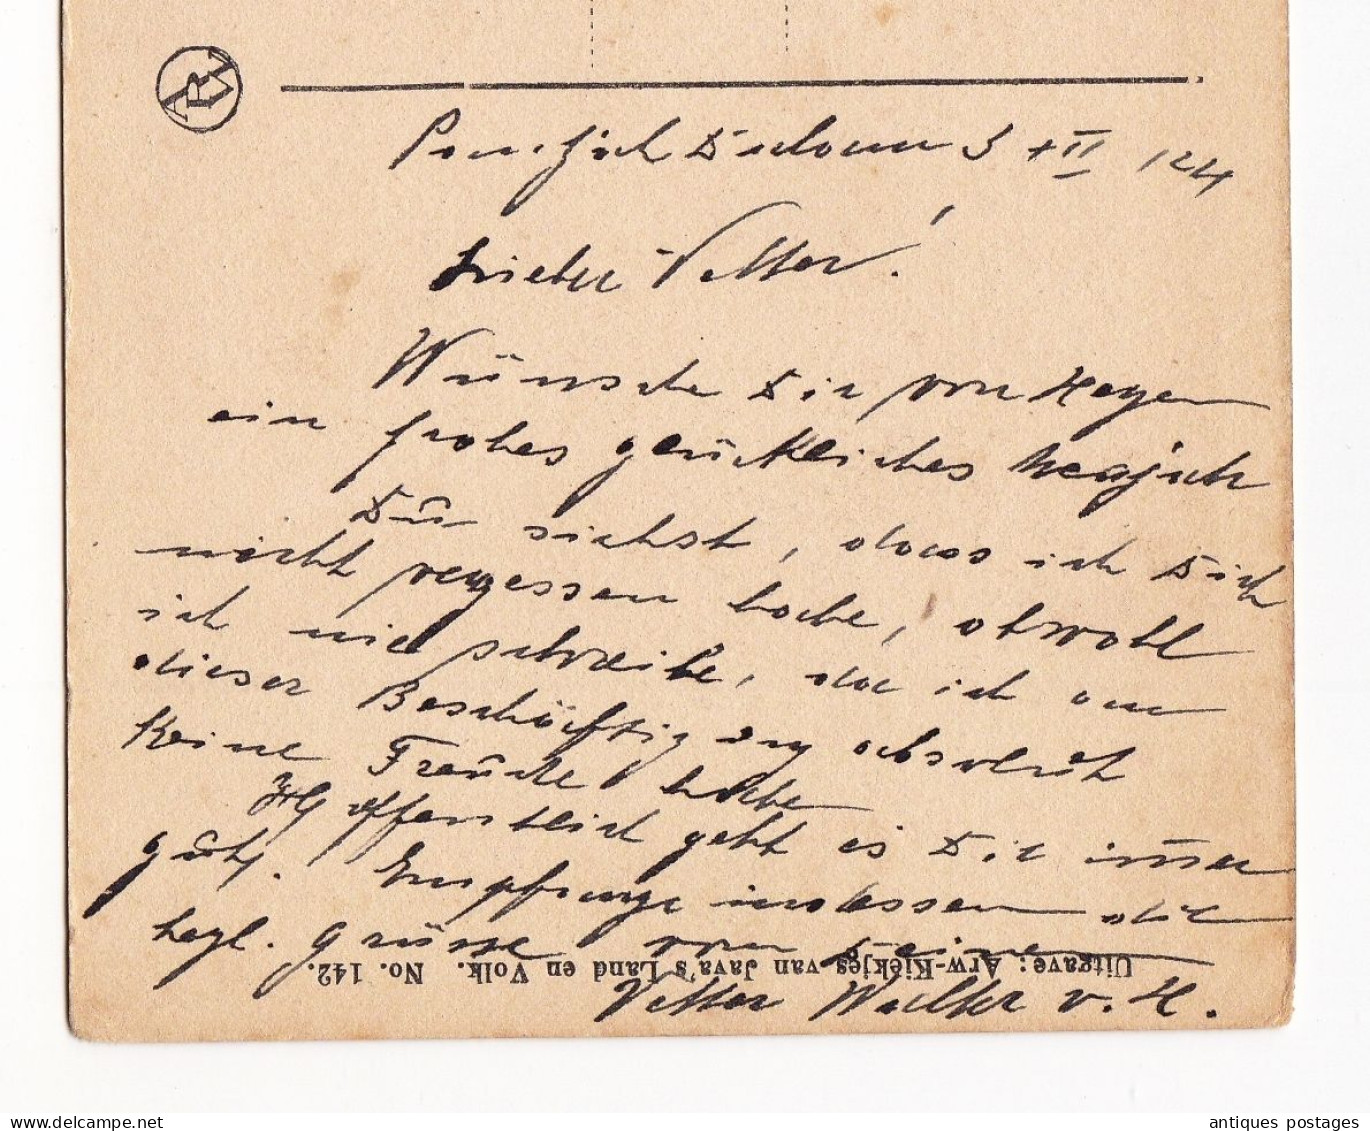 ARW
3 XII 124
Lieber Vetter!
Wünsche Dir von Herzen
ein frohes glückliches Neujahr
Du siehst, dass ich Dich
nicht vergessen habe, obwohl
ich nie schreibe, da ich an
dieser Beschäftigung absolut
keine Freude habe
Hoffentlich geht es Dir immer
gut. Empfange indessen die
hzgl. Grüsse von Deinem
Vetter Walter v. H.
Uitgave: Arw-Kiekjes van Java's Land en Volk. No. 142.
antiques postages